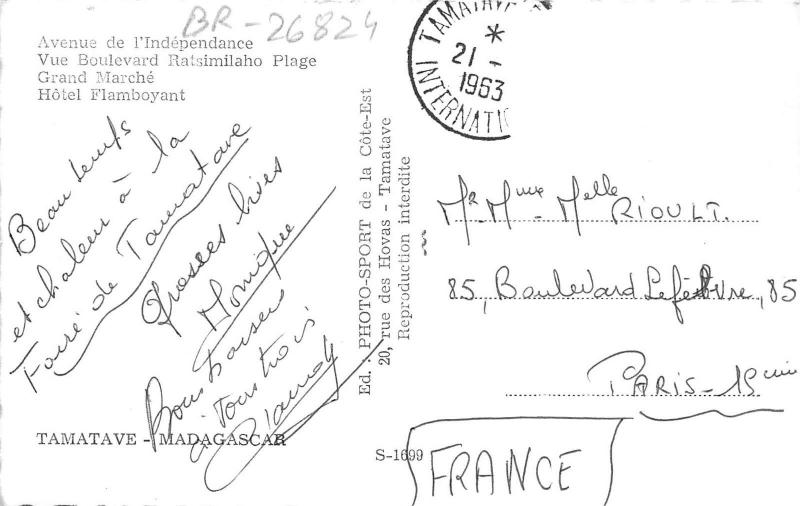 BR-26824
Avenue de l'Indépendance
Vue Boulevard Ratsimilaho Plage
Grand Marché
Hôtel Flamboyant
Beau temps
et chaleur à la
Foire de Tamatave
Grosses bises
Monique
Bons baisers
à tous trois
TAMATAVE - MADAGASCAR
Ed. : PHOTO-SPORT de la Côte-Est
20, rue des Hovas - Tamatave
Reproduction interdite
S-1699
TAMATAVE
*
21 -
1963
INTERNATI
Mr Mme Melle RIOULT.
85, Boulevard Lefèbvre, 85
PARIS-15ème
FRANCE